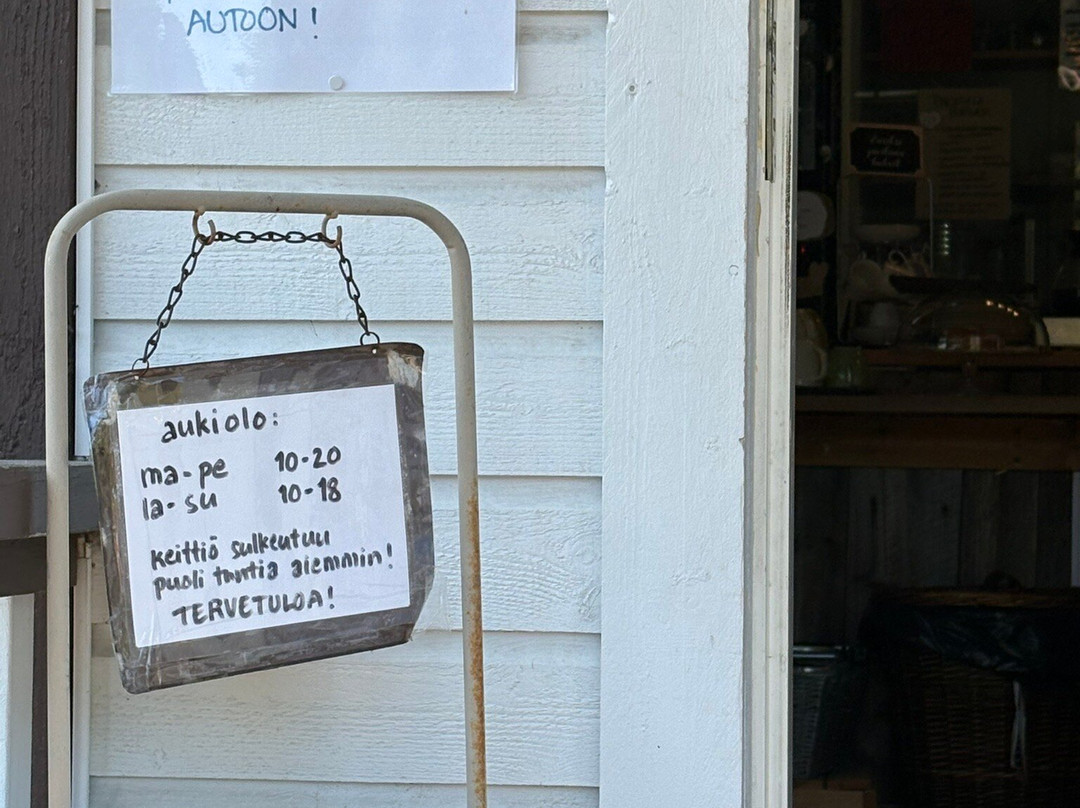 AUTOON!
aukiolo:
ma-pe 10-20
la-su 10-18
keittiö sulkeutuu
puoli tuntia aiemmin!
TERVETULOA!